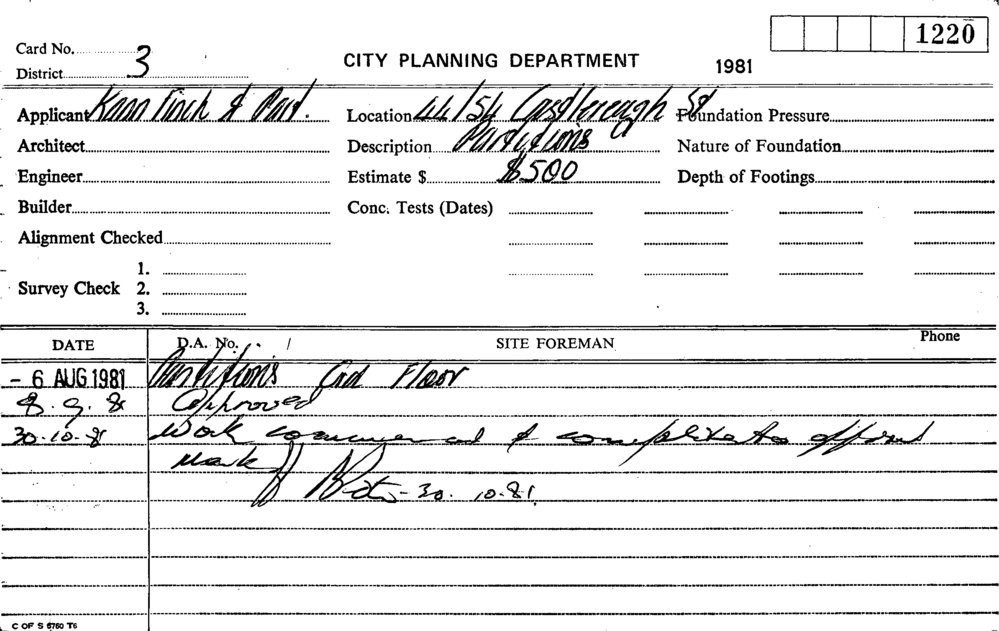 1220
Card No. 3
District
CITY PLANNING DEPARTMENT
1981
Applicant Kann Finch & Part. Location 44/54 Castlereagh St Foundation Pressure
Architect Description Partitions Nature of Foundation
Engineer Estimate $ $500 Depth of Footings
Builder Conc. Tests (Dates)
Alignment Checked
1.
Survey Check 2.
3.
DATE D.A. No. SITE FOREMAN Phone
- 6 AUG 1981 Partitions Gd Floor
8.9.81 Approved
30-10-81 Work commenced & completed to
30.10.81.
C OF S 6760 T6